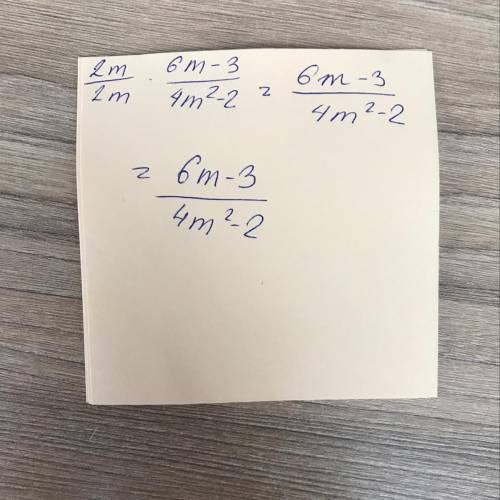 2m/2m · 6m-3/4m²-2 = 6m-3/4m²-2
= 6m-3/4m²-2